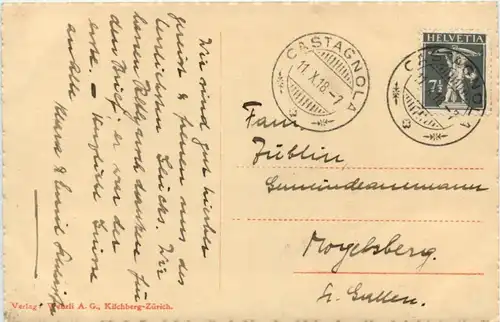 Wir sind gut hieher
gereist & freuen uns des
herrlichen Blicks. Wir
danken für
den Brief, er war der
erste. – Herzliche Grüsse
HELVETIA
7½
CASTAGNOLA
11.X.18-7
CASTAGNOLA
Fam.
Züblin,
Gemeindeammann
Mogelsberg.
Ct. Gallen.
Verlag Wehrli A. G., Kilchberg-Zürich.